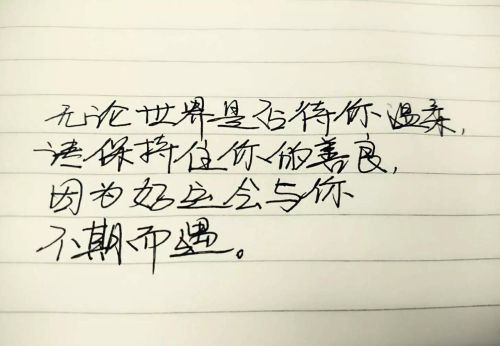 无论世界是否待你温柔，
请保持住你的善良，
因为好运会与你
不期而遇。